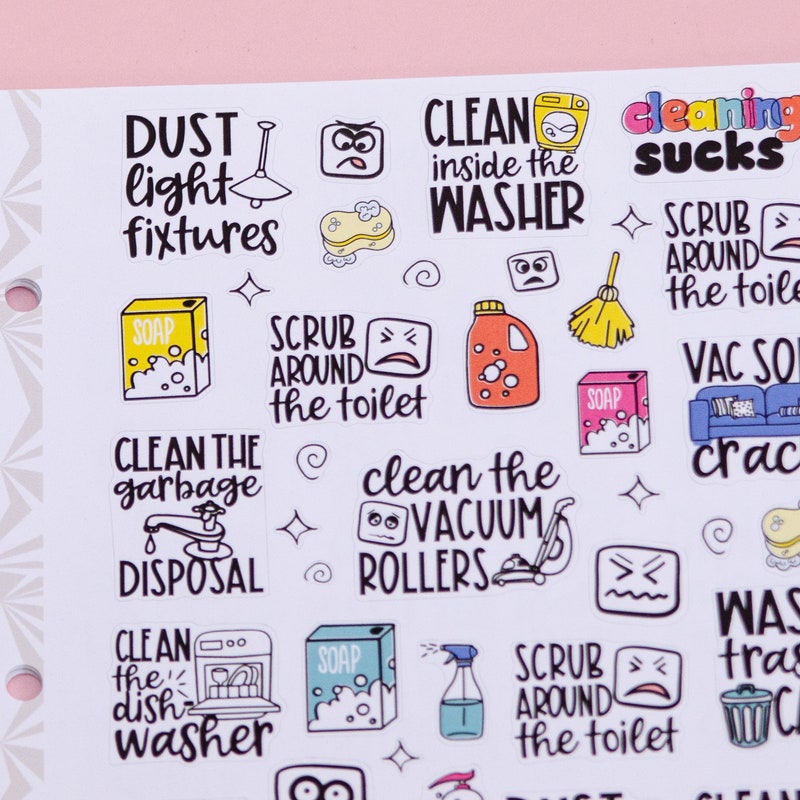 DUST
light
fixtures
CLEAN
inside the
WASHER
cleaning
sucks
SCRUB
AROUND
the
SOAP
SCRUB
AROUND
the toilet
SOAP
VAC
CLEAN THE
garbage
DISPOSAL
clean the
VACUUM
ROLLERS
CLEAN
the
dish-
washer
SOAP
SCRUB
AROUND
the toilet
DUST
CLEAN